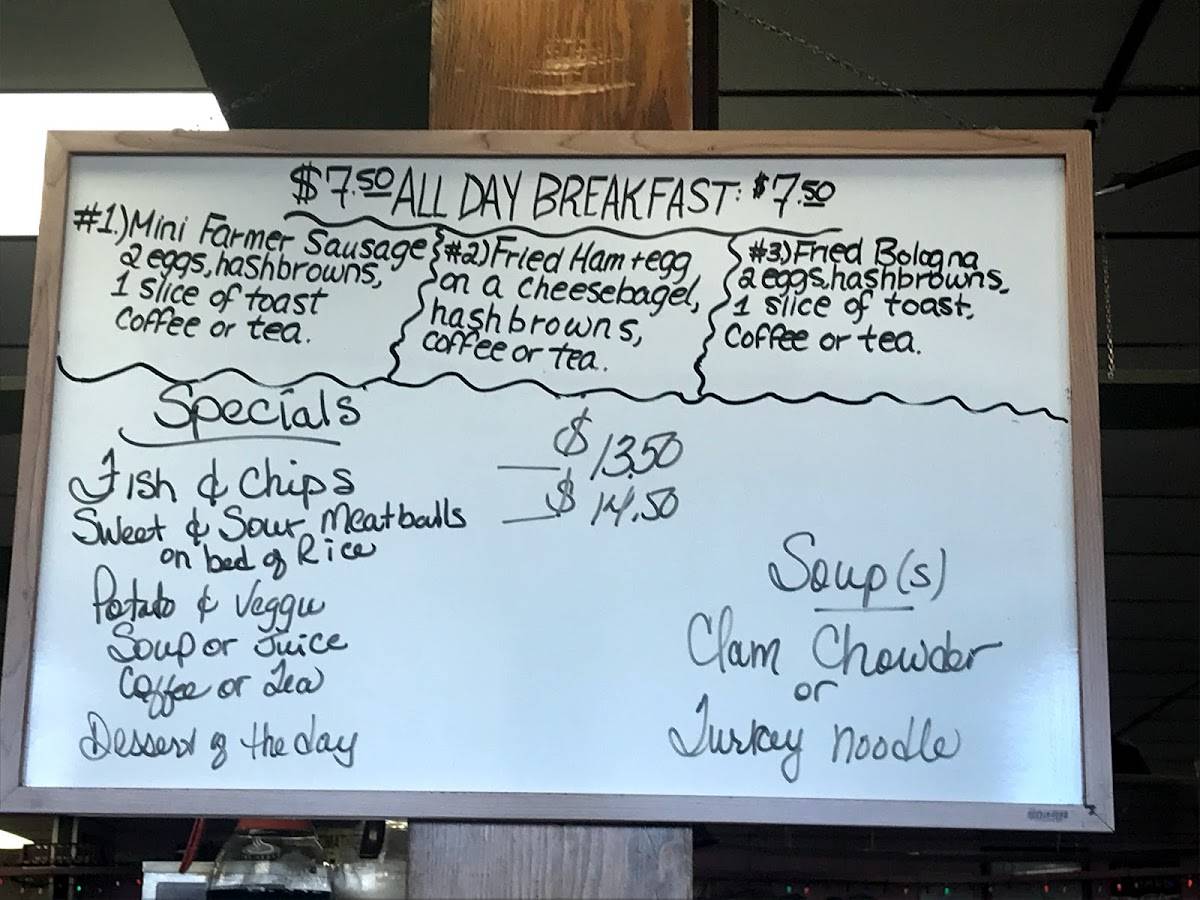 $7.50 ALL DAY BREAKFAST: $7.50
#1.) Mini Farmer Sausage
2 eggs, hashbrowns,
1 slice of toast
coffee or tea.
#2) Fried Ham + egg
on a cheesebagel,
hashbrowns,
coffee or tea.
#3.) Fried Bologna
2 eggs, hashbrowns,
1 slice of toast,
coffee or tea.
Specials
Fish & Chips $13.50
Sweet & Sour Meatballs $14.50
on bed of Rice
Potato & Veggie
Soup or Juice
Coffee or Tea
Dessert of the day
Soup(s)
Clam Chowder
or
Turkey Noodle